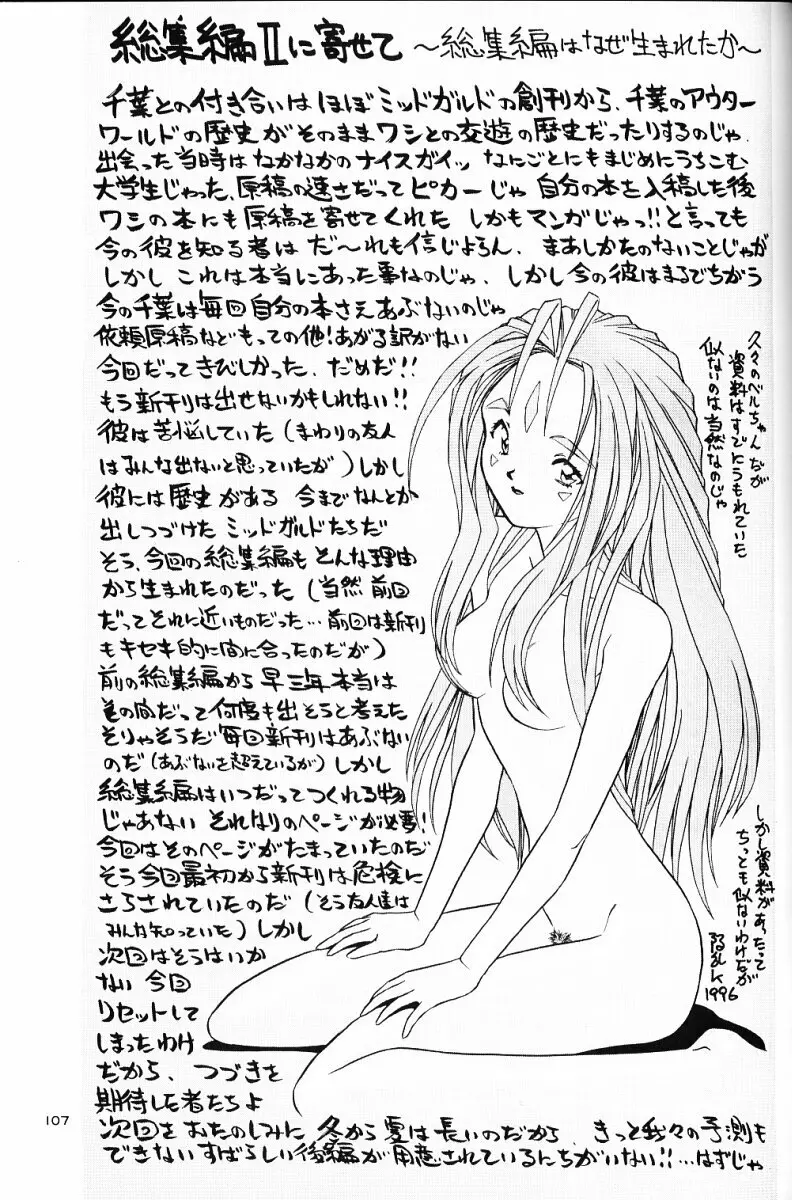 総集編Ⅱに寄せて 〜総集編はなぜ生まれたか〜
千葉との付き合いはほぼミッドガルドの創刊から、千葉のアウター
ワールドの歴史がそのままワシとの交遊の歴史だったりするのじゃ.
出会った当時はなかなかのナイスガイッ なにごとにもまじめにうちこむ
大学生じゃった、原稿の速さだってピカ一じゃ 自分の本を入稿した後
ワシの本にも原稿を寄せてくれた しかもマンガじゃっ!!と言っても
今の彼を知る者は だ〜れも信じよろん、まあしかたのないことじゃが
しかし これは本当にあった事なのじゃ、しかし今の彼はまるでちがう
今の千葉は毎回自分の本さえあぶないのじゃ
依頼原稿などもっての他!あがる訳がない
今回だってきびしかった、だめだ!!
もう新刊は出せないかもしれない!!
彼は苦悩していた(まわりの友人
はみんな出ないと思っていたが)しかし
彼には歴史がある 今までなんとか
出しつづけたミッドガルドたちだ
そう、今回の総集編もそんな理由
から生まれたのだった(当然前回
だってそれに近いものだった…前回は新刊
もキセキ的に間に合ったのだが)
前の総集編から早三年本当は
その間だって何度も出そうと考えた
そりゃそうだ毎回新刊はあぶない
のだ(あぶないを超えているが)しかし
総集編はいつだってつくれる物
じゃあない それなりのページが必要!
今回はそのページがたまっていたのだ
そう今回最初から新刊は危険に
さらされていたのだ(そう友人達は
みんな知っていた)しかし
次回はそうはいか
ない 今回
リセットして
しまったわけ
だから、つづきを
期待した者たちよ
次回をおたのしみに 冬から夏は長いのだから、きっと我々の予測も
できないすばらしい後編が用意されているにちがいない!!…はずじゃ
久々のベルちゃんだが
資料はすでにうもれていた
似ないのは当然なのじゃ
しかし資料があったって
ちっとも似ないわけだが
1996
107